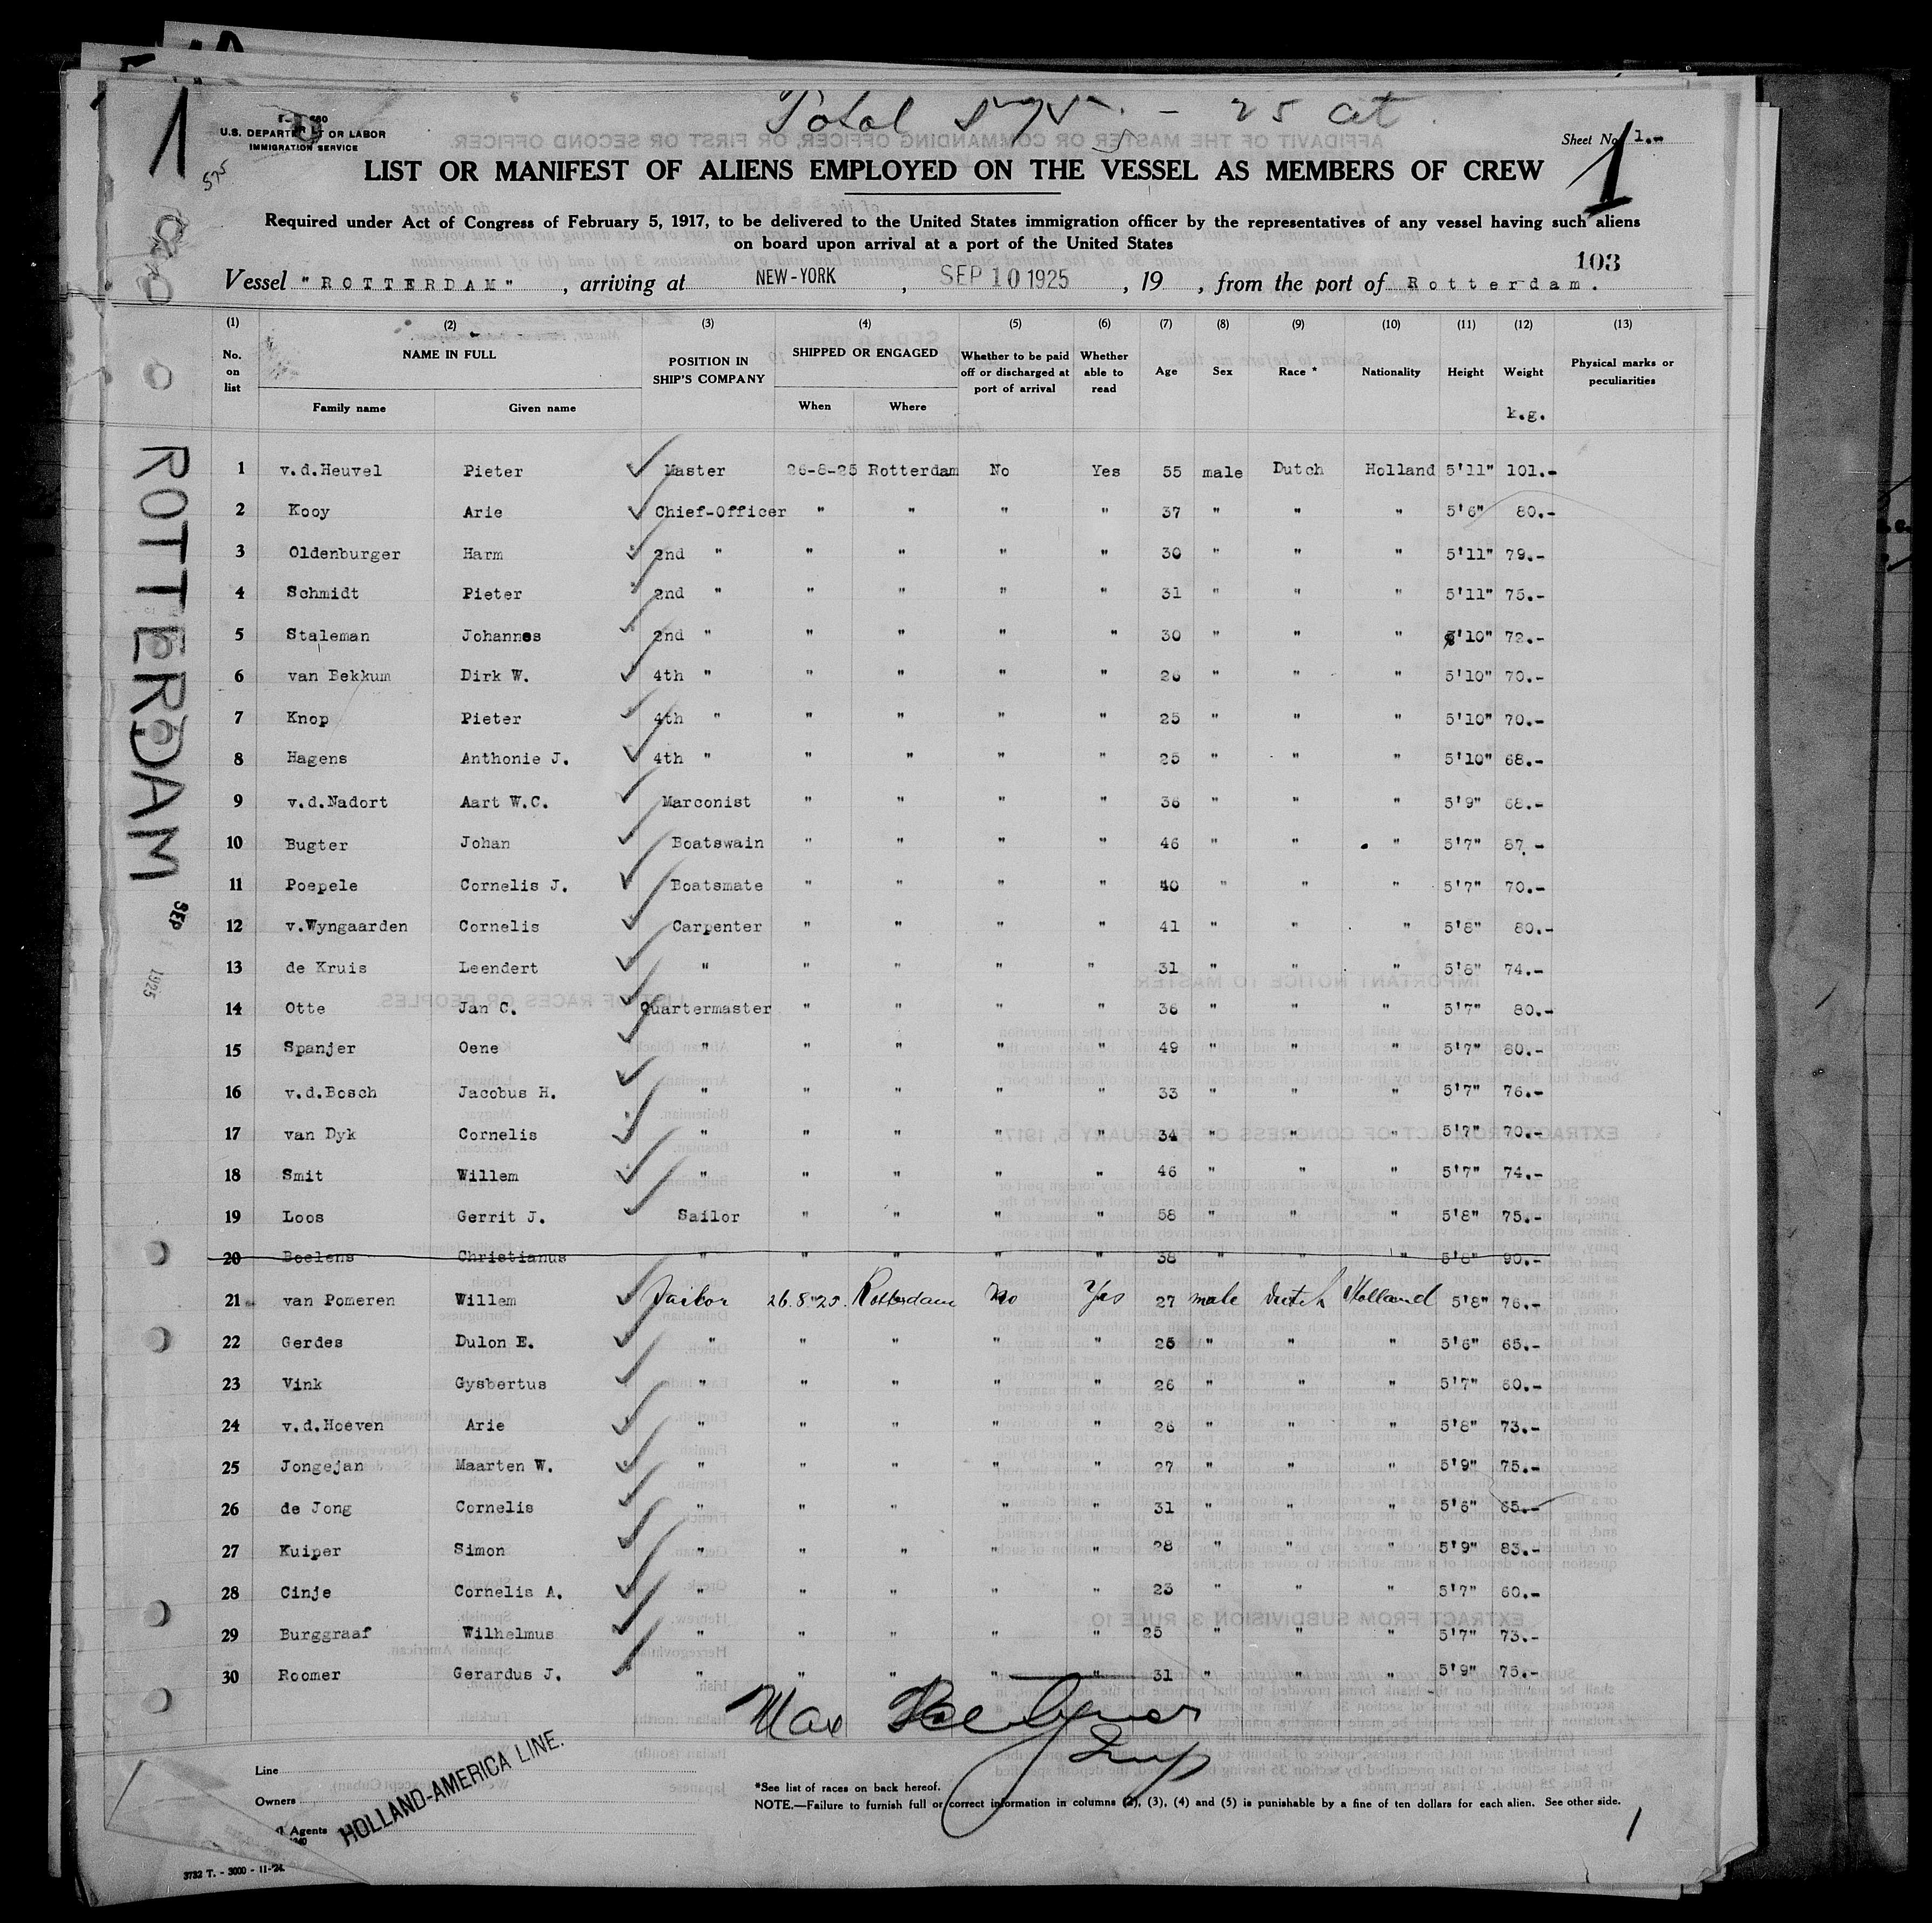 Total 575 - 25 at
1
F-680
U.S. DEPARTMENT OF LABOR
IMMIGRATION SERVICE
575
Sheet No. 1.-
1
LIST OR MANIFEST OF ALIENS EMPLOYED ON THE VESSEL AS MEMBERS OF CREW
Required under Act of Congress of February 5, 1917, to be delivered to the United States immigration officer by the representatives of any vessel having such aliens
on board upon arrival at a port of the United States
103
Vessel "ROTTERDAM", arriving at NEW-YORK, SEP 10 1925, 19 , from the port of Rotterdam.
(1) (2) (3) (4) (5) (6) (7) (8) (9) (10) (11) (12) (13)
No. on list NAME IN FULL POSITION IN SHIP'S COMPANY SHIPPED OR ENGAGED Whether to be paid off or discharged at port of arrival Whether able to read Age Sex Race * Nationality Height Weight Physical marks or peculiarities
Family name Given name When Where k.g.
1 v.d.Heuvel Pieter Master 26-8-25 Rotterdam No Yes 55 male Dutch Holland 5'11" 101.-
2 Kooy Arie Chief-Officer " " " " 37 " " " 5'6" 80.-
3 Oldenburger Harm 2nd " " " " " 30 " " " 5'11" 79.-
4 Schmidt Pieter 2nd " " " " " 31 " " " 5'11" 75.-
5 Staleman Johannes 2nd " " " " " 30 " " " 5'10" 72.-
6 van Bekkum Dirk W. 4th " " " " " 26 " " " 5'10" 70.-
7 Knop Pieter 4th " " " " " 25 " " " 5'10" 70.-
8 Hagens Anthonie J. 4th " " " " " 25 " " " 5'10" 68.-
9 v.d.Nadort Aart W.C. Marconist " " " " 36 " " " 5'9" 68.-
10 Bugter Johan Boatswain " " " " 46 " " " 5'7" 87.-
11 Poepele Cornelis J. Boatsmate " " " " 40 " " " 5'7" 70.-
12 v.Wyngaarden Cornelis Carpenter " " " " 41 " " " 5'8" 80.-
13 de Kruis Leendert " " " " " 31 " " " 5'8" 74.-
14 Otte Jan C. Quartermaster " " " " 36 " " " 5'7" 80.-
15 Spanjer Oene " " " " " 49 " " " 5'7" 60.-
16 v.d.Bosch Jacobus H. " " " " " 33 " " " 5'7" 76.-
17 van Dyk Cornelis " " " " " 34 " " " 5'7" 70.-
18 Smit Willem " " " " " 46 " " " 5'7" 74.-
19 Loos Gerrit J. Sailor " " " " 58 " " " 5'8" 75.-
20 Boelens Christianus " " " " " 38 " " " 5'8" 90.-
21 van Pomeren Willem Sailor 26.8.25. Rotterdam No Yes 27 male Dutch Holland 5'8" 76.-
22 Gerdes Dulon E. " " " " " 25 " " " 5'6" 65.-
23 Vink Gysbertus " " " " " 26 " " " 5'7" 60.-
24 v.d.Hoeven Arie " " " " " 26 " " " 5'8" 73.-
25 Jongejan Maarten W. " " " " " 27 " " " 5'9" 75.-
26 de Jong Cornelis " " " " " 31 " " " 5'6" 65.-
27 Kuiper Simon " " " " " 28 " " " 5'9" 83.-
28 Cinje Cornelis A. " " " " " 23 " " " 5'7" 60.-
29 Burggraaf Wilhelmus " " " " " 25 " " " 5'7" 73.-
30 Roomer Gerardus J. " " " " " 31 " " " 5'9" 75.-
ROTTERDAM
SEP 1925
Max
Insp
Line
Owners
Agents
HOLLAND-AMERICA LINE.
*See list of races on back hereof.
NOTE.—Failure to furnish full or correct information in columns (2), (3), (4) and (5) is punishable by a fine of ten dollars for each alien. See other side.
1
3732 T. - 3000 - 11-'24.